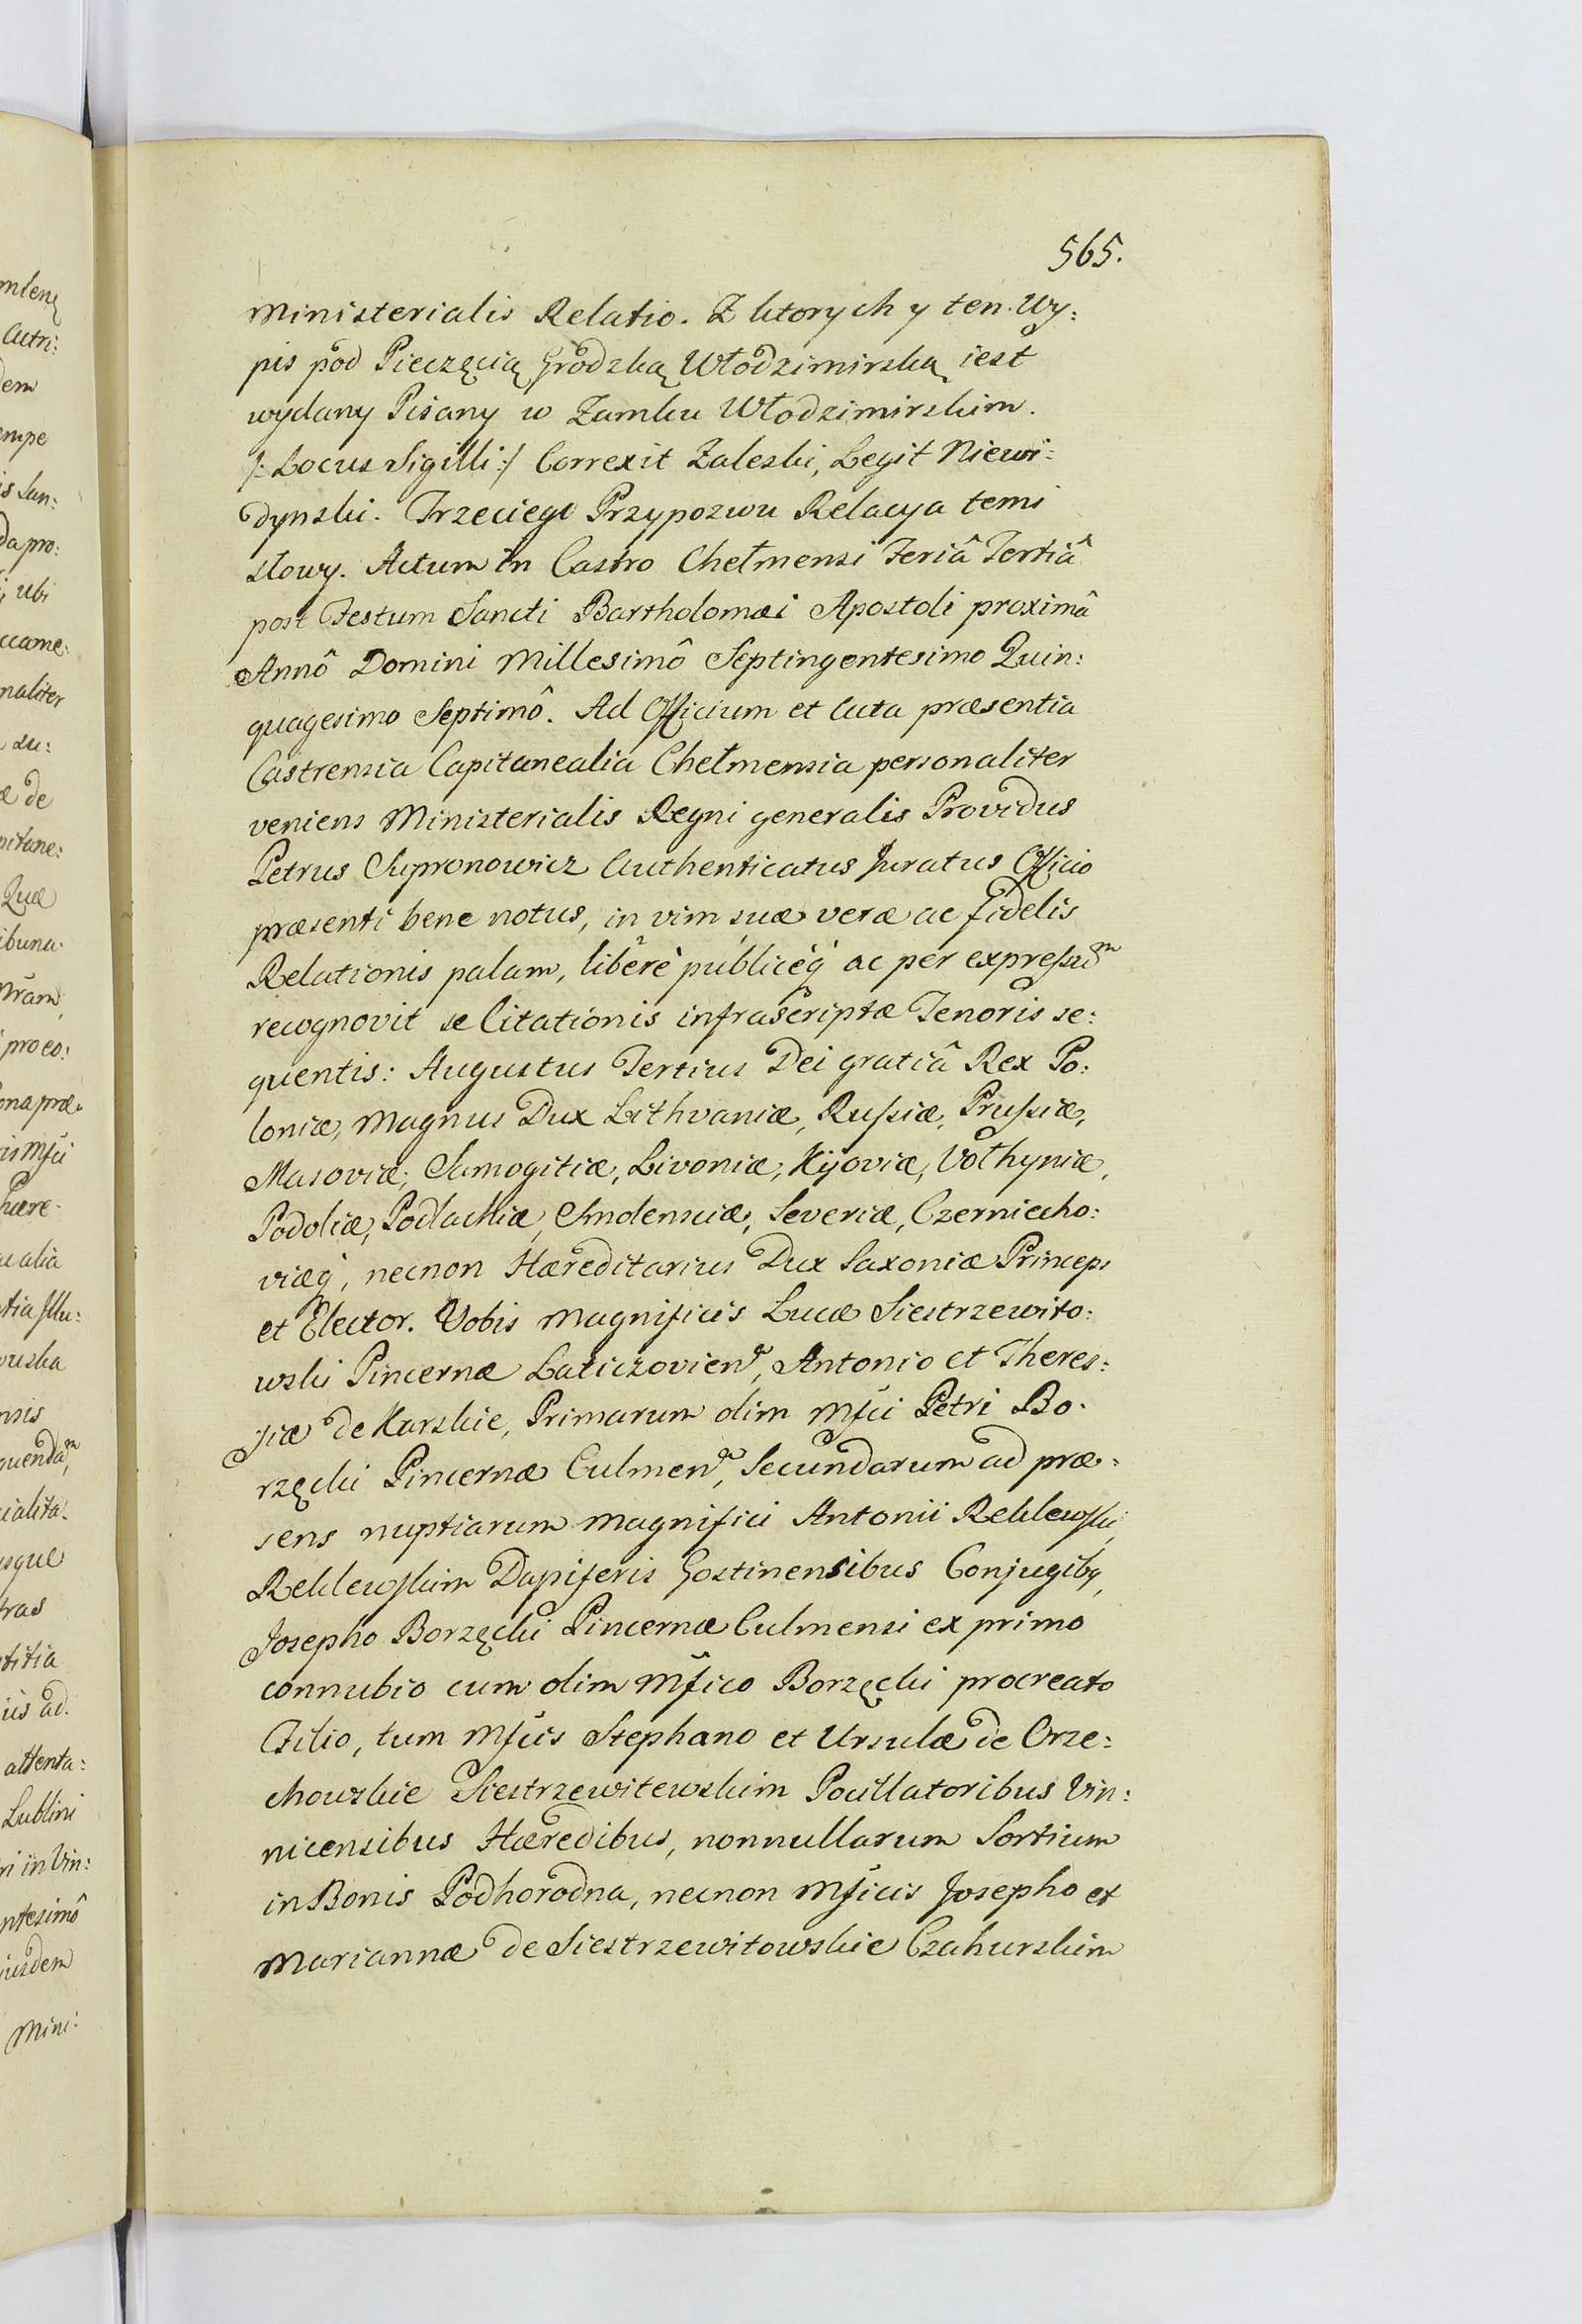 565.
Ministerialis Relatio. Z ktorych y ten Wy:
pis pod Pieczęcią Grodzką Włodzimirską iest
wydany Pisany w Zamku Włodzimirskim.
/: Locus Sigilli :/ Correxit Zaleski, Legit Niewi:
dynski. Trzeciego Przypozwu Relacya temi
słowy. Actum in Castro Chełmensi Feriâ Tertiâ
post Festum Sancti Bartholomæi Apostoli proximâ
Annô Domini Millesimô Septingentesimo Quin:
quagesimo Septimô. Ad Officium et Acta præsentia
Castrensia Capitanealia Chełmensia personaliter
veniens Ministerialis Regni generalis Providus
Petrus Supronowicz Authenticatus Juratus Officio
præsenti bene notus, in vim suæ veræ ac fidelis
Relationis palam, liberè públicèq́ ac per expressum
recognovit se Citationis infrascriptæ Tenoris se:
quentis: Augustus Tertius Dei gratiâ Rex Po:
loniæ, Magnus Dux Lithvaniæ, Russiæ, Prussiæ,
Masoviæ, Samogitiæ, Livoniæ, Kijoviæ, Vołhyniæ,
Podoliæ, Podlachiæ, Smolensciæ, Severiæ, Czerniecho:
viæq́, necnon Hæreditarius Dux Saxoniæ Princeps
et Elector. Vobis Magnificis Lucæ Siestrzewito:
wski Pincernæ Laticzovien, Antonio et Theres:
siæ de Karskie, Primarum olim Mfci Petri Bo:
rzęcki Pincernæ Culmen, Secundarum ad præ:
sens nuptiarum Magnifici Antonii Reklewski,
Reklewskim Dapiferis Gostinensibus Conjugibq,
Josepho Borzęcki Pincernæ Culmensi ex primo
connubio cum olim Mfico Borzęcki procreato
Filio, tum Mfcis Stephano et Ursulæ de Orze:
chowskie Siestrzewitowskim Pocillatoribus Vin:
nicensibus Hæredibus, nonnullarum Sortium
in Bonis Podhorodna, necnon Mficis Josepho et
Mariannæ de Siestrzewitowskie Czahurskim